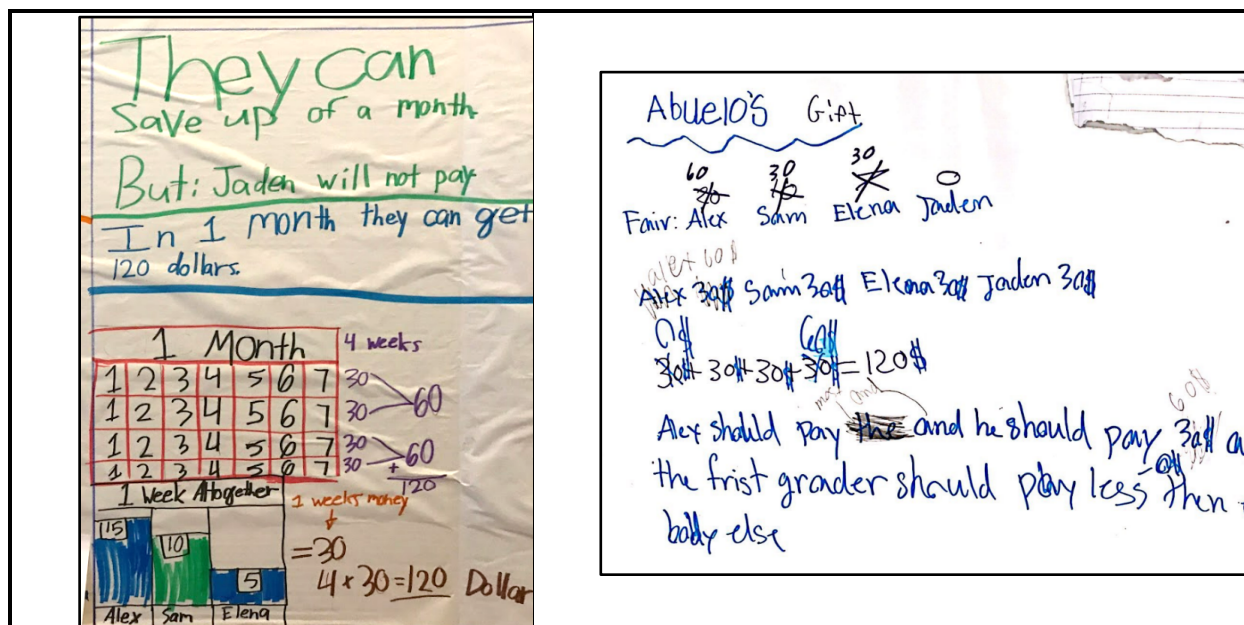 They can
Save up of a month
But: Jaden will not pay
In 1 month they can get
120 dollars.
1 Month 4 weeks
1 2 3 4 5 6 7 30
1 2 3 4 5 6 7 30 60
1 2 3 4 5 6 7 30 60
1 2 3 4 5 6 7 30 +
120
1 Week Altogether
1 weeks money
15 10 5
= 30
4 × 30 = 120 Dollar
Alex Sam Elena
Abuelo's Gift
60 30 30 0
Fair: Alex Sam Elena Jaden
alex 60$
Alex 30$ Sam 30$ Elena 30$ Jaden 30$
0$ 60$
30$ + 30$ + 30$ + 30$ = 120$
most and
60$
Alex should pay the and he should pay 30$ a
0$
the frist grader should play less then
body else